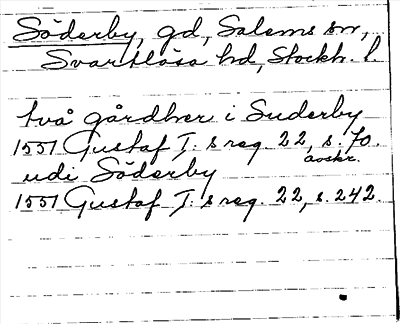 Söderby, gd, Salems sn,
Svartlösa hd, Stockh. l.
två gårdher i Suderby
1551 Gustaf I:s reg. 22, s. 70.
avskr.
udi Söderby
1551 Gustaf I:s reg. 22, s. 242.